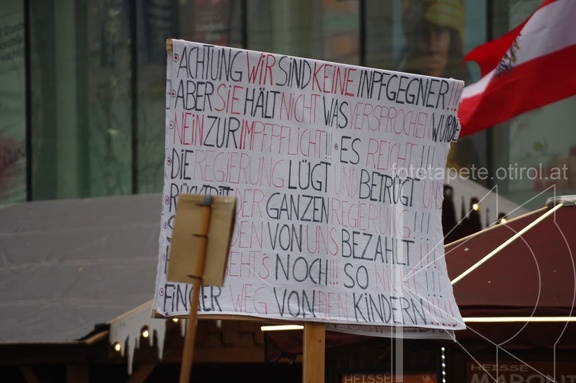 ACHTUNG WIR SIND KEINE INPFGEGNER!!!
ABER SIE HÄLT NICHT WAS VERSPROCHEN WURDE
NEIN ZUR IMPFPFLICHT!!! ES REICHT!!!
DIE REGIERUNG LÜGT UND BETRÜGT UNS
DER GANZEN REGIERUNG!!!
VON UNS BEZAHLT
NOCH!!! SO
FINGER WEG VON DEN KINDERN!!!
fototapete.otirol.at
HEISSE
HEISSE
MARONI